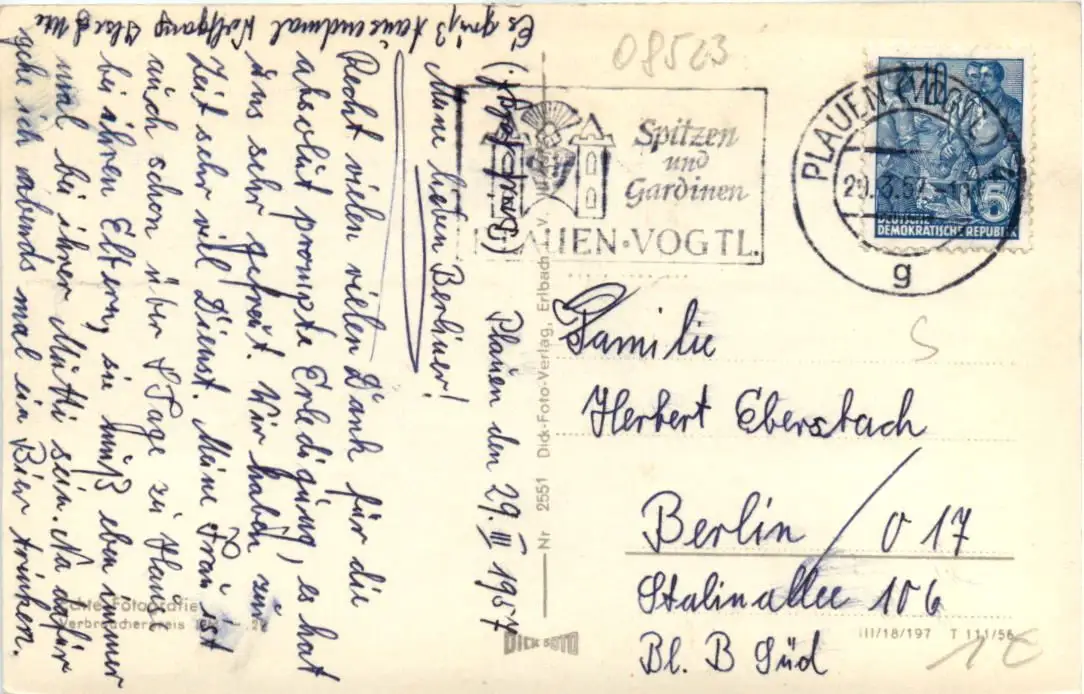 Plauen den 29. III 1957
Meine lieben Berliner!
Recht vielen vielen Dank für die
absolut prompte Erledigung, es hat
uns sehr gefreut. Wir haben zur
Zeit sehr viel Dienst. Meine Frau ist
auch schon über 8 Tage zu Haus
bei ihren Eltern, sie muß eben immer
mal bei ihrer Mutti sein. Na dafür
gehe ich abends mal ein Bier trinken.
Es grüßt tausendmal Wolfgang Ilse u Ute
Echte Fotografie
Verbraucherpreis
Nr 2551 Dick-Foto-Verlag, Erlbach V.
DICK FOTO
08523
Spitzen
und
Gardinen
PLAUEN·VOGTL.
PLAUEN (VOGTL)
29.3.57
g
10
5
DEUTSCHE
DEMOKRATISCHE REPUBLIK
S
Familie
Herbert Eberstach
Berlin / O 17
Stalinallee 106
Bl. B Süd
III/18/197 T 111/56
1€